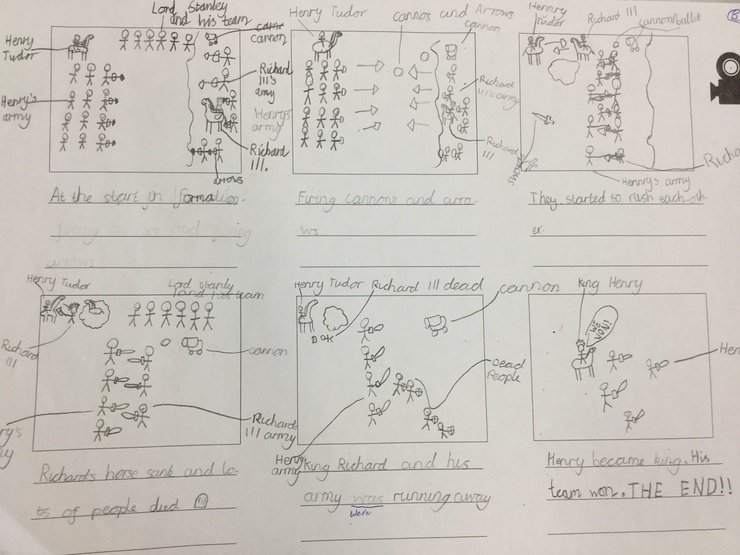 Lord Stanley
and his team
Henry
Tudor
Cannon
Richard
III's
army
Henry's
army
Richard
III.
arrows
At the start on formation.
Henry Tudor
cannos and Arrows
cannon
Richard
III's army
Henrys
army
Richard
III
Firing cannons and arro-
ws
Hennry
Tudor
Richard III
cannonballit
swords
Hennrys army
Richa
They started to rush each-oth-
er.
Henry Tudor
Lord stanly
and his team
Richard
III
cannon
ry's
Richard
III army
Richards horse sank and lo-
ts of people died
Henry Tudor
Richard III dead
cannon
Dead
People
Henrys
army
King Richard and his
army was running away
were
King Henry
WE
WON!
Hen
Henry became king. His
team won. THE END!!